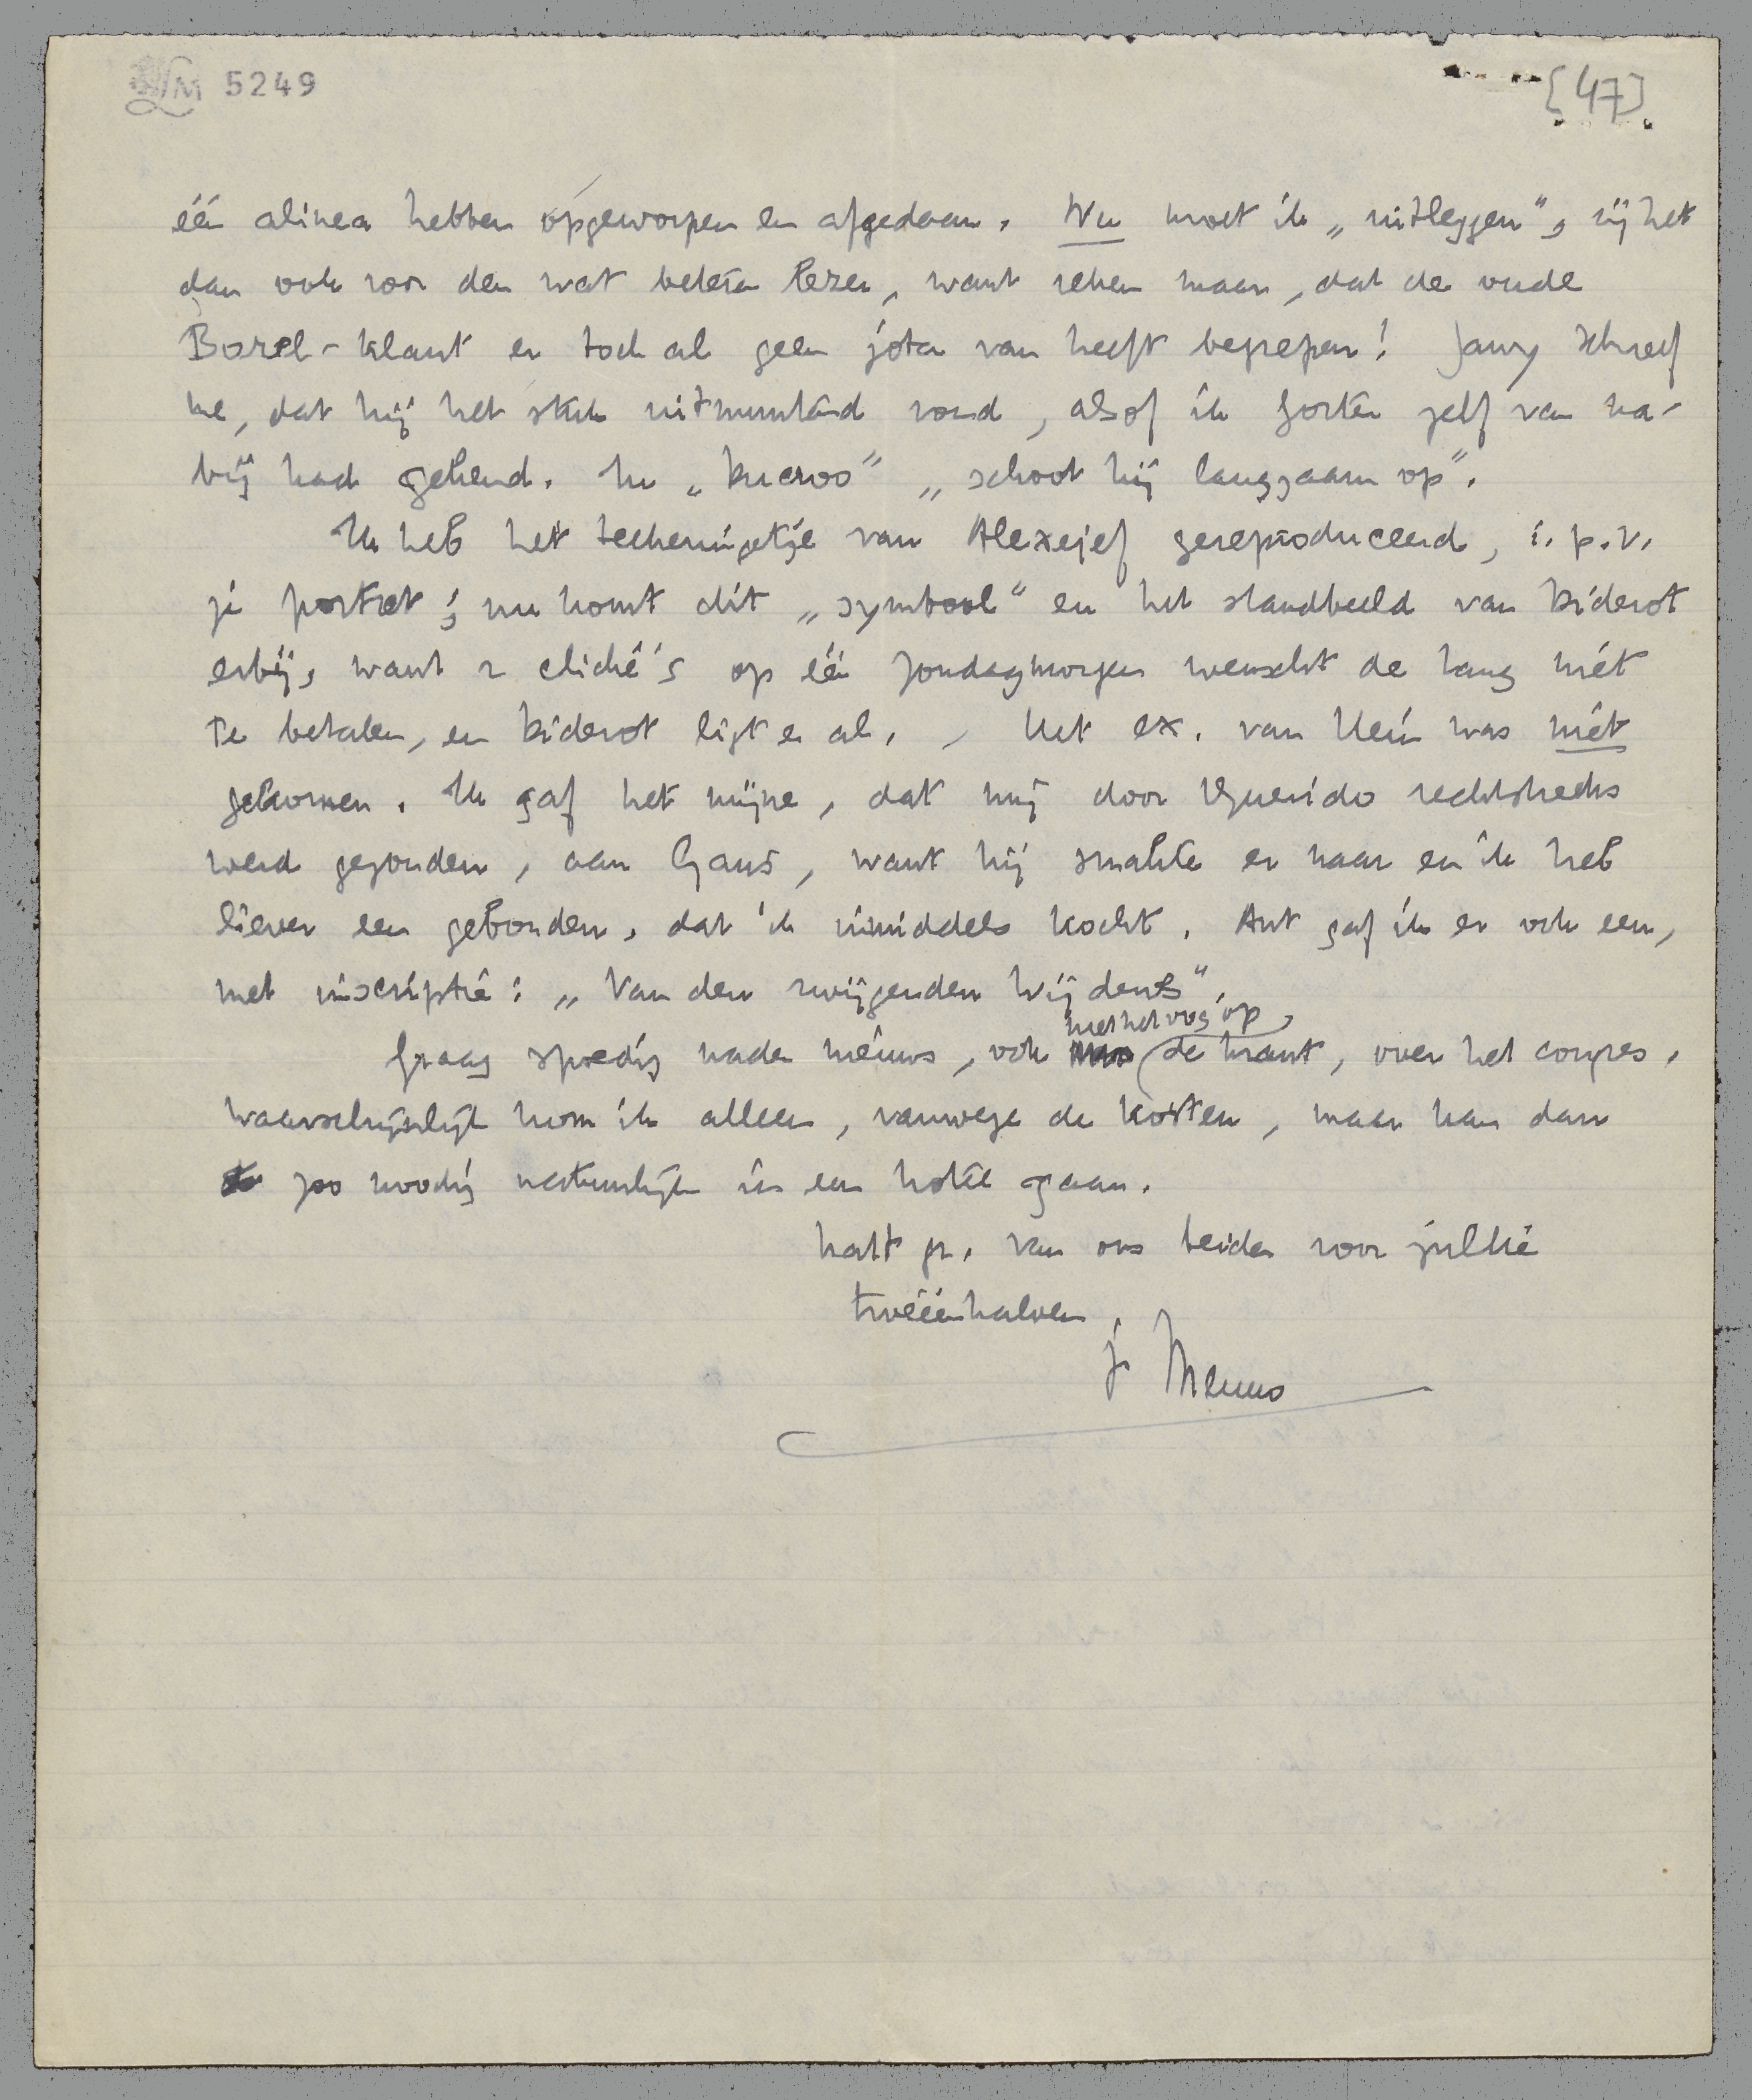 LM 5249
[47]
één alinea hebben opgeworpen en afgedaan. Nu moet ik „uitleggen", zij het
dan ook voor den wat beteren lezer, want reken maar, dat de oude
Borel-klant er toch al geen jota van heeft begrepen! Jany schreef
me, dat hij het stuk uitmuntend vond, alsof ik Gorter zelf van na-
bij had gekend. In „Ducroo" „schoot hij langzaam op".
Ik heb het teekeningetje van Alexejef gereproduceerd, i.p.v.
je portret; nu komt dit „symbool" en het standbeeld van Diderot
erbij, want 2 cliché's op één Zondagmorgen wenscht de krant niét
te betalen, en Diderot ligt er al. - Het ex. van Hein was niét
gekomen. Ik gaf het mijne, dat mij door Querido rechtstreeks
werd gezonden, aan Gans, want hij snakte er naar en ik heb
liever een gebonden, dat ik inmiddels kocht. Ant gaf ik er ook een,
met inscriptie: „Van den zwijgenden Wijdenes".
Graag spoedig nader nieuws, ook met het oog op de krant, over het congres.
Waarschijnlijk kom ik alleen, vanwege de kosten, maar kan dan
zoo noodig natuurlijk in een hotel gaan.
hart. gr. van ons beiden voor jullie
tweeënhalven,
je Menno